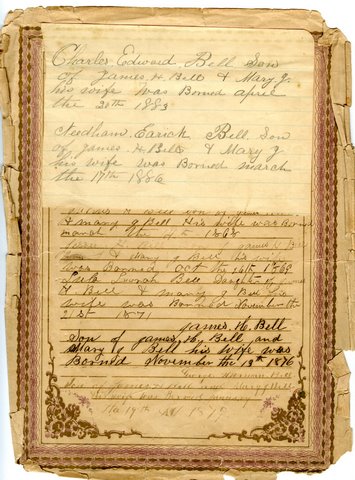 Charles Edward Bell Son
of James H. Bell & Mary J.
his wife was Borned april
the 20th 1883
Needham Carick Bell Son
of James H Bell & Mary J
his wife was Borned march
the 17th 1886
Bell son of
& mary J Bell His wife was Borned
march the 4th 1868
James H Bell
& Mary J Bell his wife
was Borned Oct the 16th 1869
Lula Bell Daughter
H Bell & mary J Bell his
wife was Borned November the
21st 1871
James H. Bell
Son of James H Bell and
Mary J Bell his Wife was
Borned November the 13th 1876
George Bell
Son of James H Bell and Mary J Bell
his wife was Borned
the 19th 1879